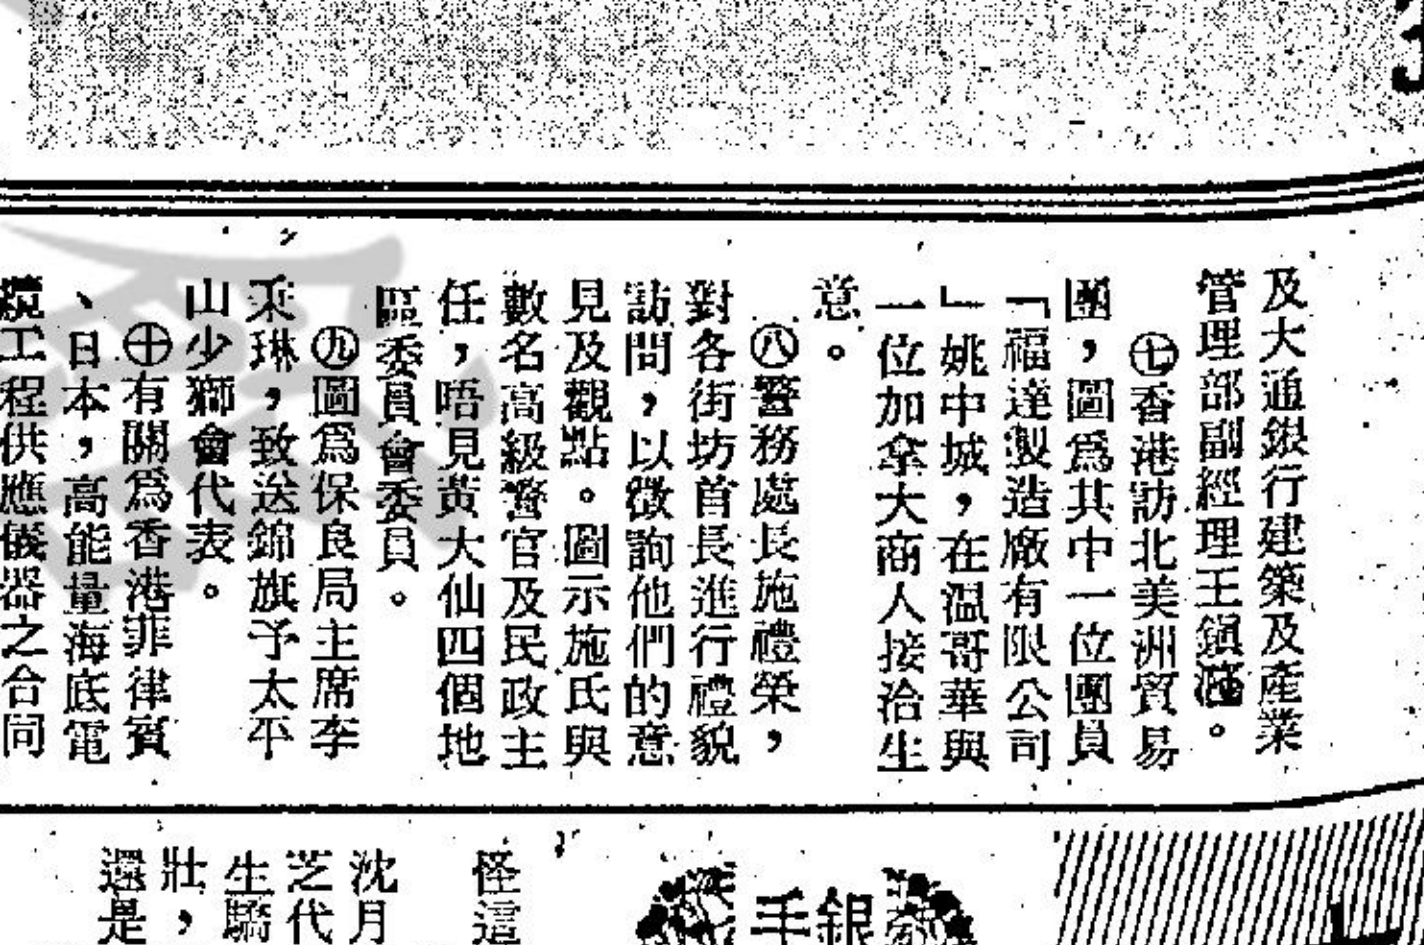 及大通銀行建築及產業
管理部副經理王鎭。
㊆香港訪北美洲貿易
團，圖爲其中一位團員
「福達製造廠有限公司
」姚中城，在溫哥華與
一位加拿大商人接洽生
意。
㊇警務處長施禮榮，
對各街坊首長進行禮貌
訪問，以徵詢他們的意
見及觀點。圖示施氏與
數名高級警官及民政主
任，晤見黃大仙四個地
區委員會委員。
㊈圖爲保良局主席李
釆琳，致送錦旗予太平
山少獅會代表。
㊉有關爲香港菲律賓
、日本，高能量海底電
纜工程供應儀器之合同
銀
手
怪這
沈月
芝代
生驕
壯，
還是